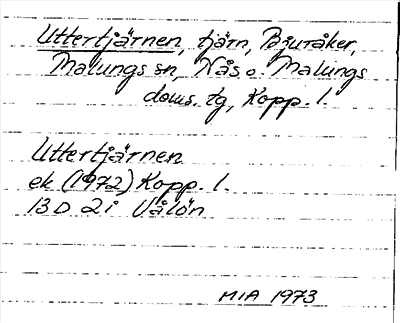 Uttertjärnen, tjärn, Bjuråker,
Malungs sn, Nås o. Malungs
doms. tg, Kopp. l.
Uttertjärnen
ek (1972) Kopp. l.
13 D 2 i Vålön
MIA 1973